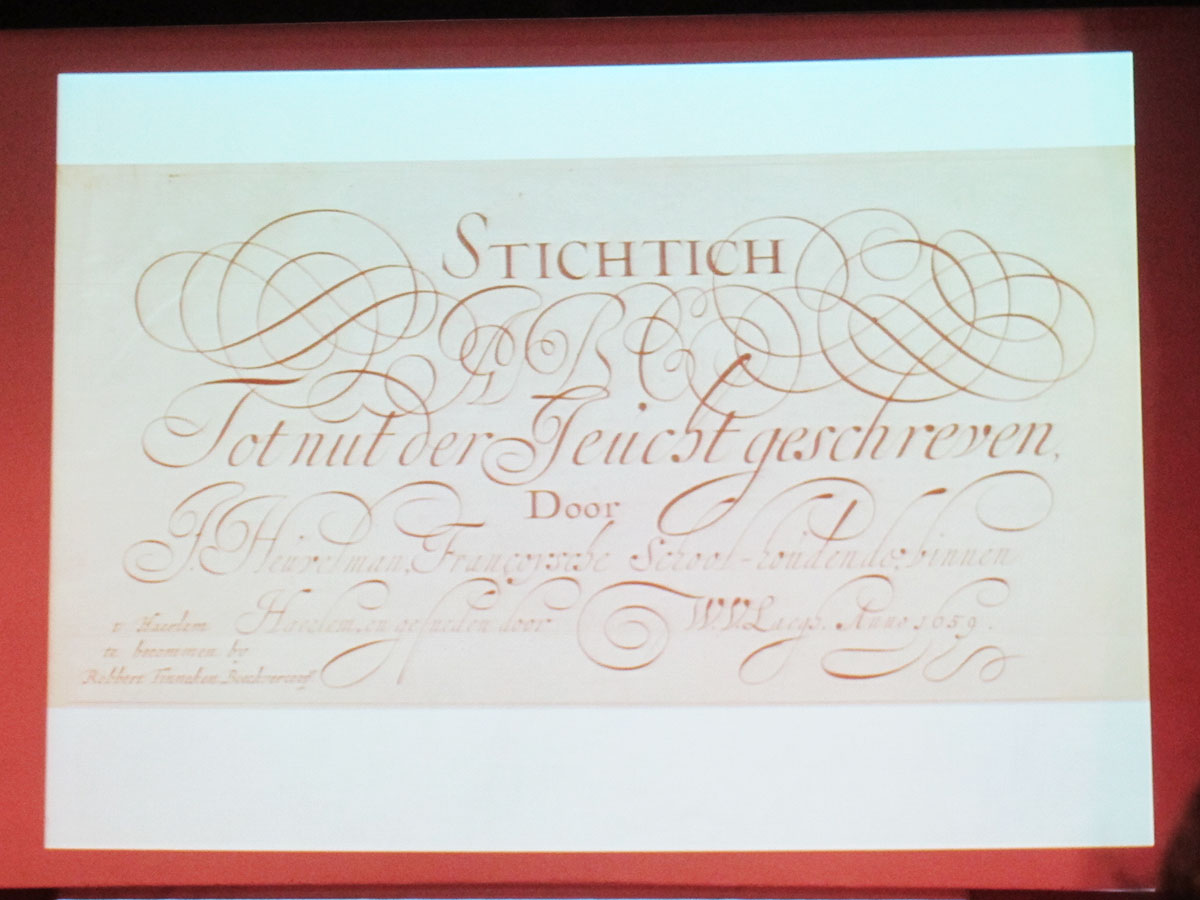 STICHTICH
ABC
Tot nut der Jeücht geschreven,
Door
J. Heuvelman, Françoysche School-houdende, binnen
Haerlem, en gesneden door W.V. Laegh. Anno 1659.
t' Haerlem
te becommen by
Robbert Tinneken Boeckvercoop^r